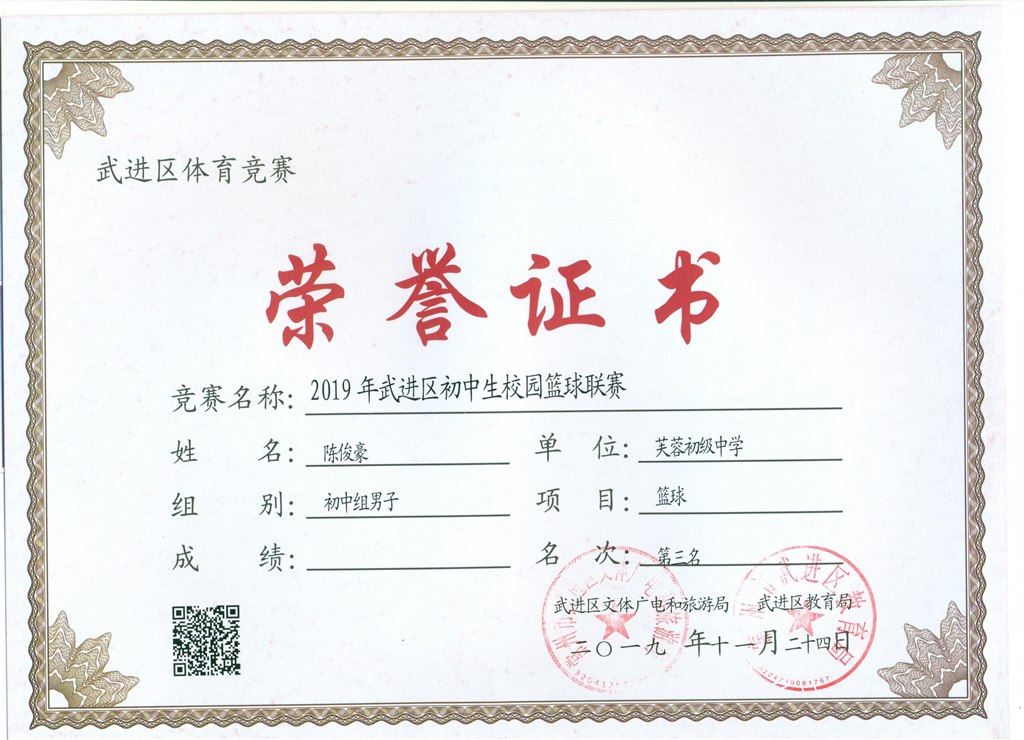 武进区体育竞赛
荣誉证书
竞赛名称: 2019年武进区初中生校园篮球联赛
姓名: 陈俊豪 单位: 芙蓉初级中学
组别: 初中组男子 项目: 篮球
成绩: 名次: 第三名
武进区文体广电和旅游局 武进区教育局
二〇一九年十一月二十四日